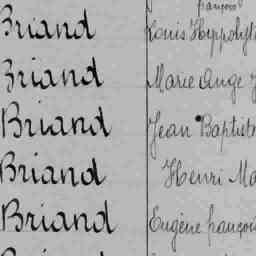 françois
Briand Louis Hyppolyte
Briand Marie Ange
Briand Jean Baptiste
Briand Henri
Briand Eugène françois